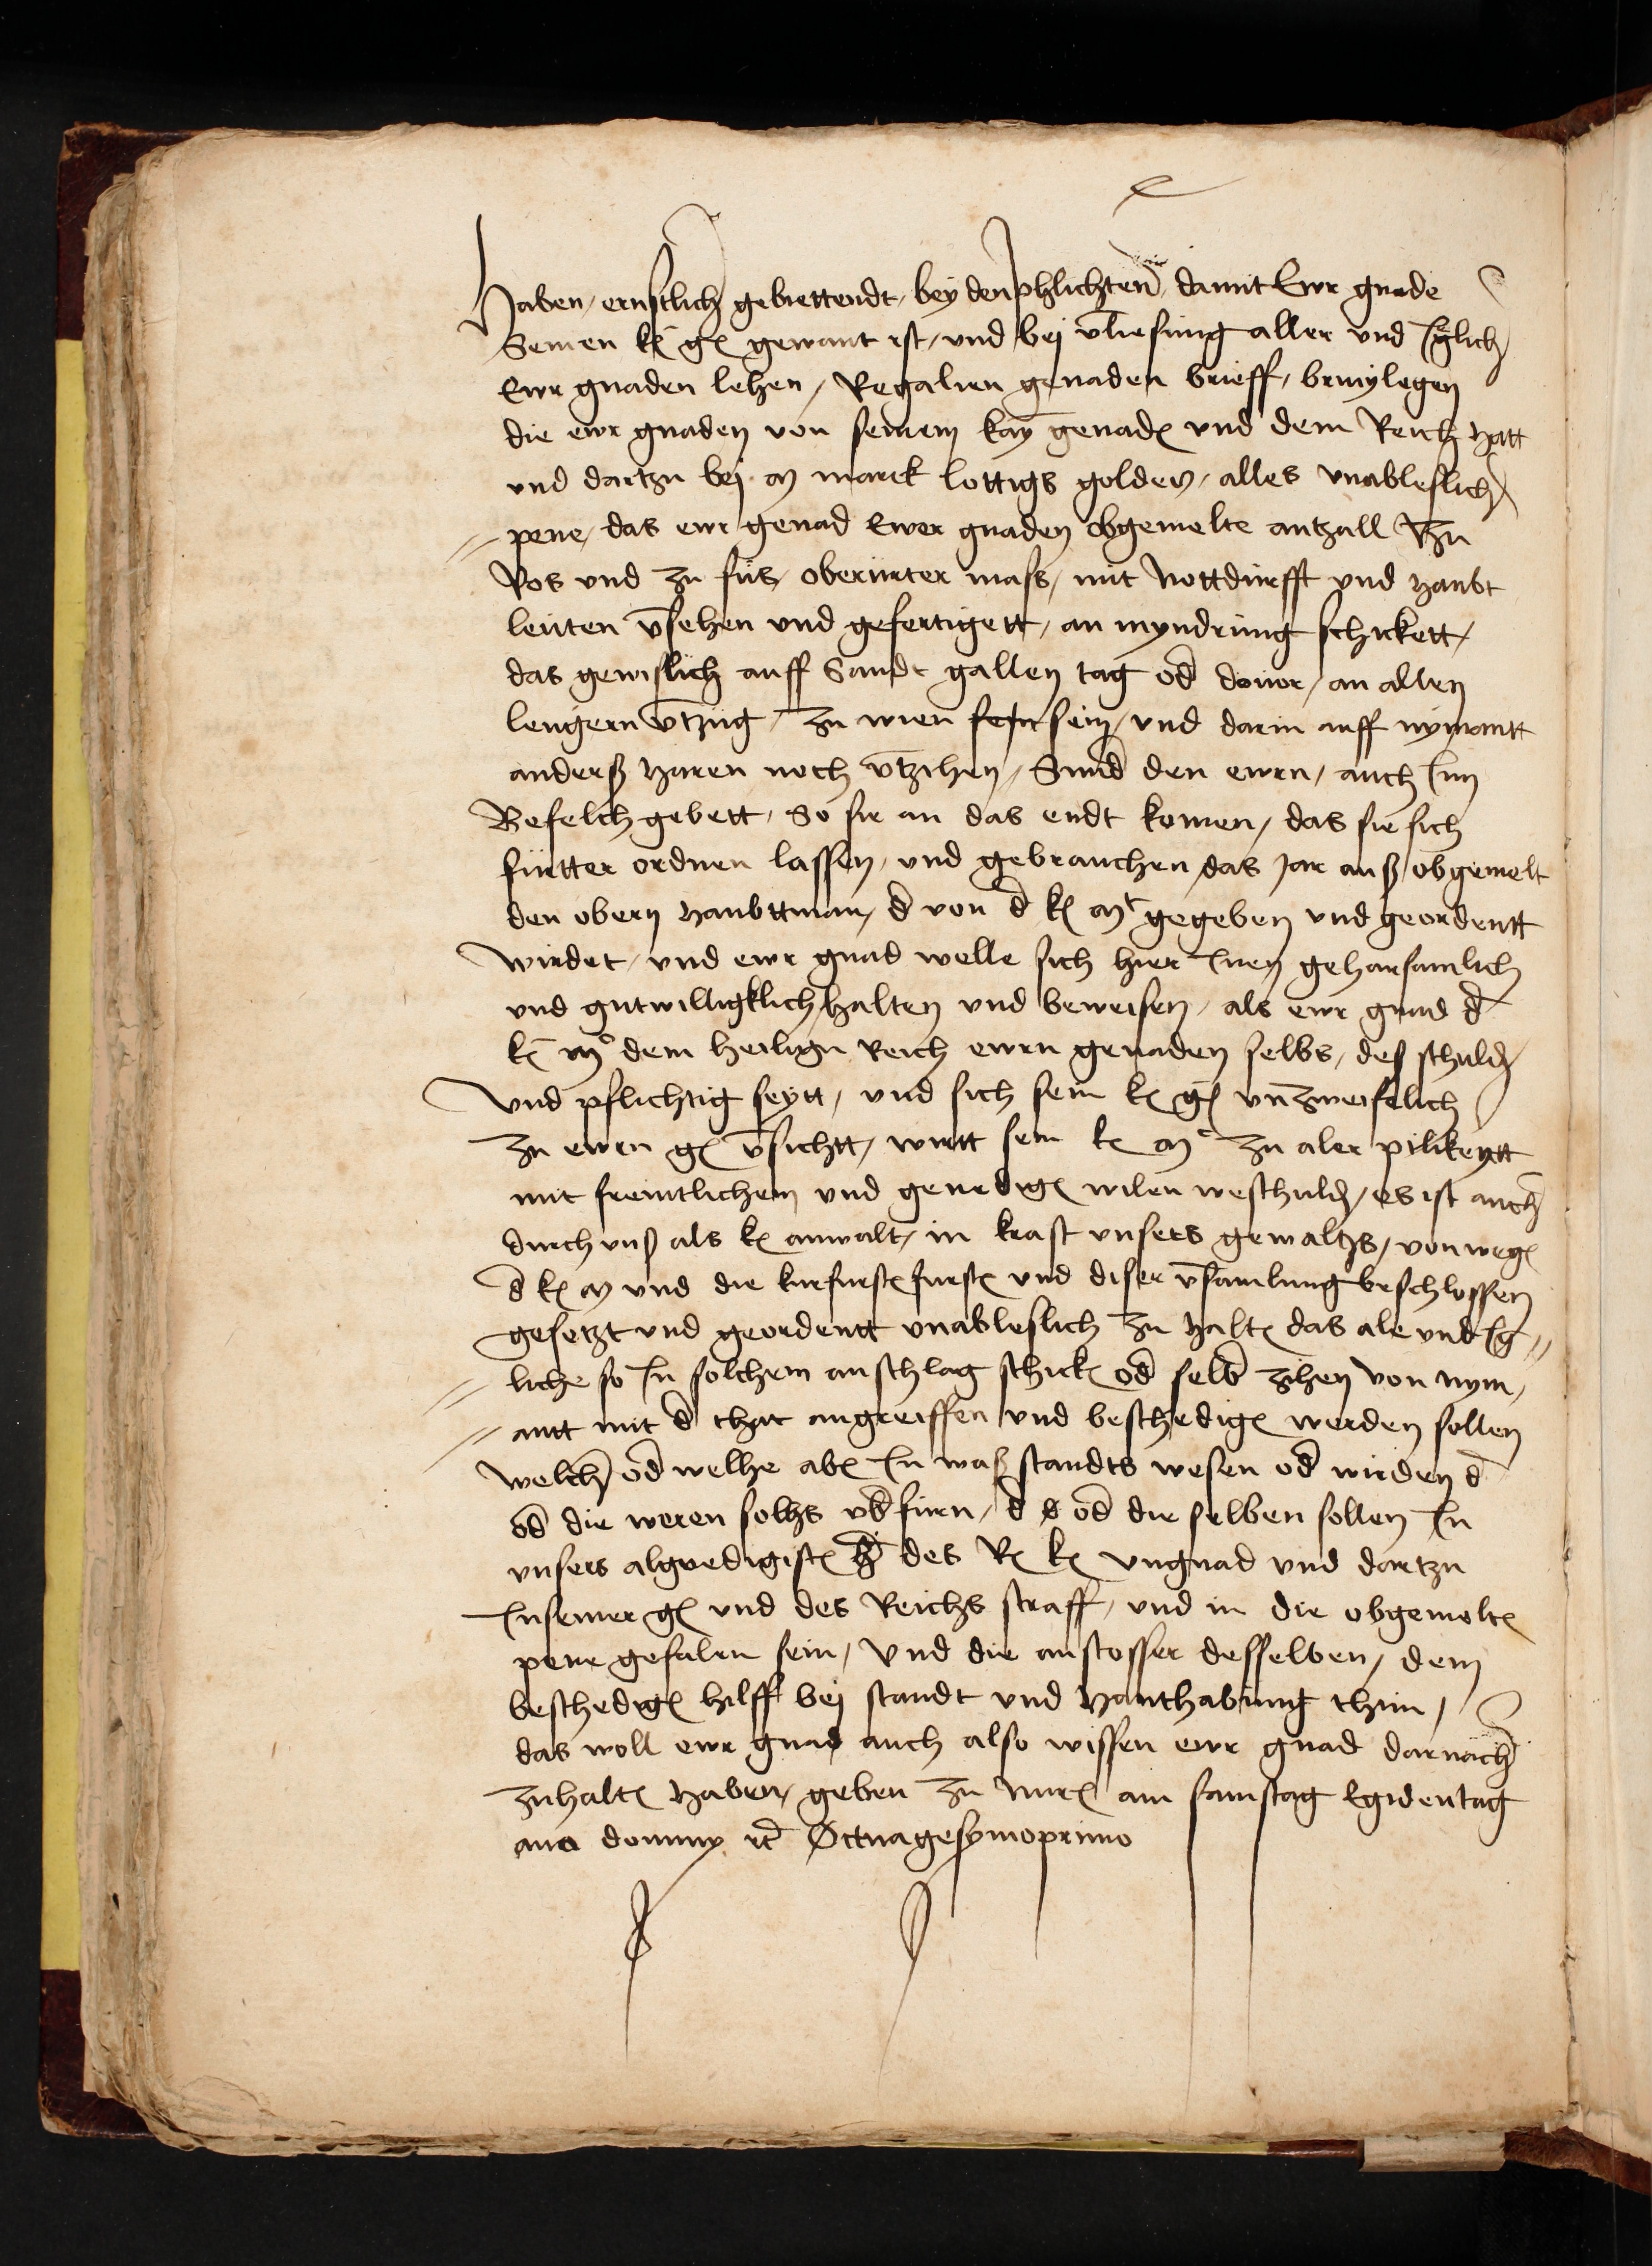 Haben, ernstlich gebiettendt, bey den phlichten, damit Ewr gnade
Seinen kn̄ gn̄ gewant ist, und bej v̄liesung aller und Iglich
Ewr gnaden lehen, Regalien genaden brieff, brivylegen
die ewr gnaden von seinem kay genaden und dem Reich hatt
und dartzu bej m marck lottigs golden, alles unableslich
pene, das ewr genad Ewer gnaden obgemelte antzall Zu
Ros und zu fus, oberurter mass, mit nottdurfft und haubt
leuten v̄sehen und gefertigett, an myndrung schickett,
das gewislich auff Sandt gallen tag od̄ douor, an allen
lengern v̄tzug, zu wien sein, und darin auff nymantt
anderß haren noch v̄tzihen, Sund̄ den ewrn, auch Inn
Befelch gebett, So sie an das endt komen, das sie sich
furtter ordnen lassen, und gebrauchen, das jar auß obgemelt
den obern haubttman, d̄ von d̄ kn̄ mt gegeben und geordentt
wirdet, und ewr gnad welle sich hier Inen gehorsamlich
und gutwilligklich halten und beweisen, als ewr gnad d̄
kn̄ mt dem heilign Reich ewrn genaden selbs, des schuld
Und pflichtig seytt, und sich sein kn̄ gn̄ un̄zweifelich
zu ewrn gn̄ v̄sichtt, wirtt sein kn̄ mt zu aler pilikeytt
mit freuntlichem und genedign̄ wilen weschuld, es ist auch
durch unß als kn̄ anwalt, in krafft unsers gewaltzs, von wegn̄
d̄ kn̄ m und die kurfurstn̄ furstn̄ und diser v̄samlung beschlossen
gesetzt und geordentt unableslich zu haltn̄ das ale und Ig
liche so In solchem anschlag schickn̄ od̄ selb zihen von nym
antt mit d̄ that angreiffen und beschedign̄ werden sollen
welch od̄ welhe abn̄ In waß standts wesen od̄ wirden d̄
od̄ die weren solhs ub̄furn, d̄ od̄ die selben sollen In
unsers algnedigistn̄ h̄ des Rn̄ kn̄ ungnad und dartzu
In seiner gn̄ und des Reichs straff, und in die obgemeltn̄
pene gefalen sein, Und die anstosser desselben, dem
beschedign̄ hilff bej standt und hanthabung thun,
das woll ewr gnad auch also wissen ewr gnad darnach
zuhaltn̄ haben, geben zu nurn̄ am samstag Egidentag
ano dominy rc̄ Octuagesymoprimo